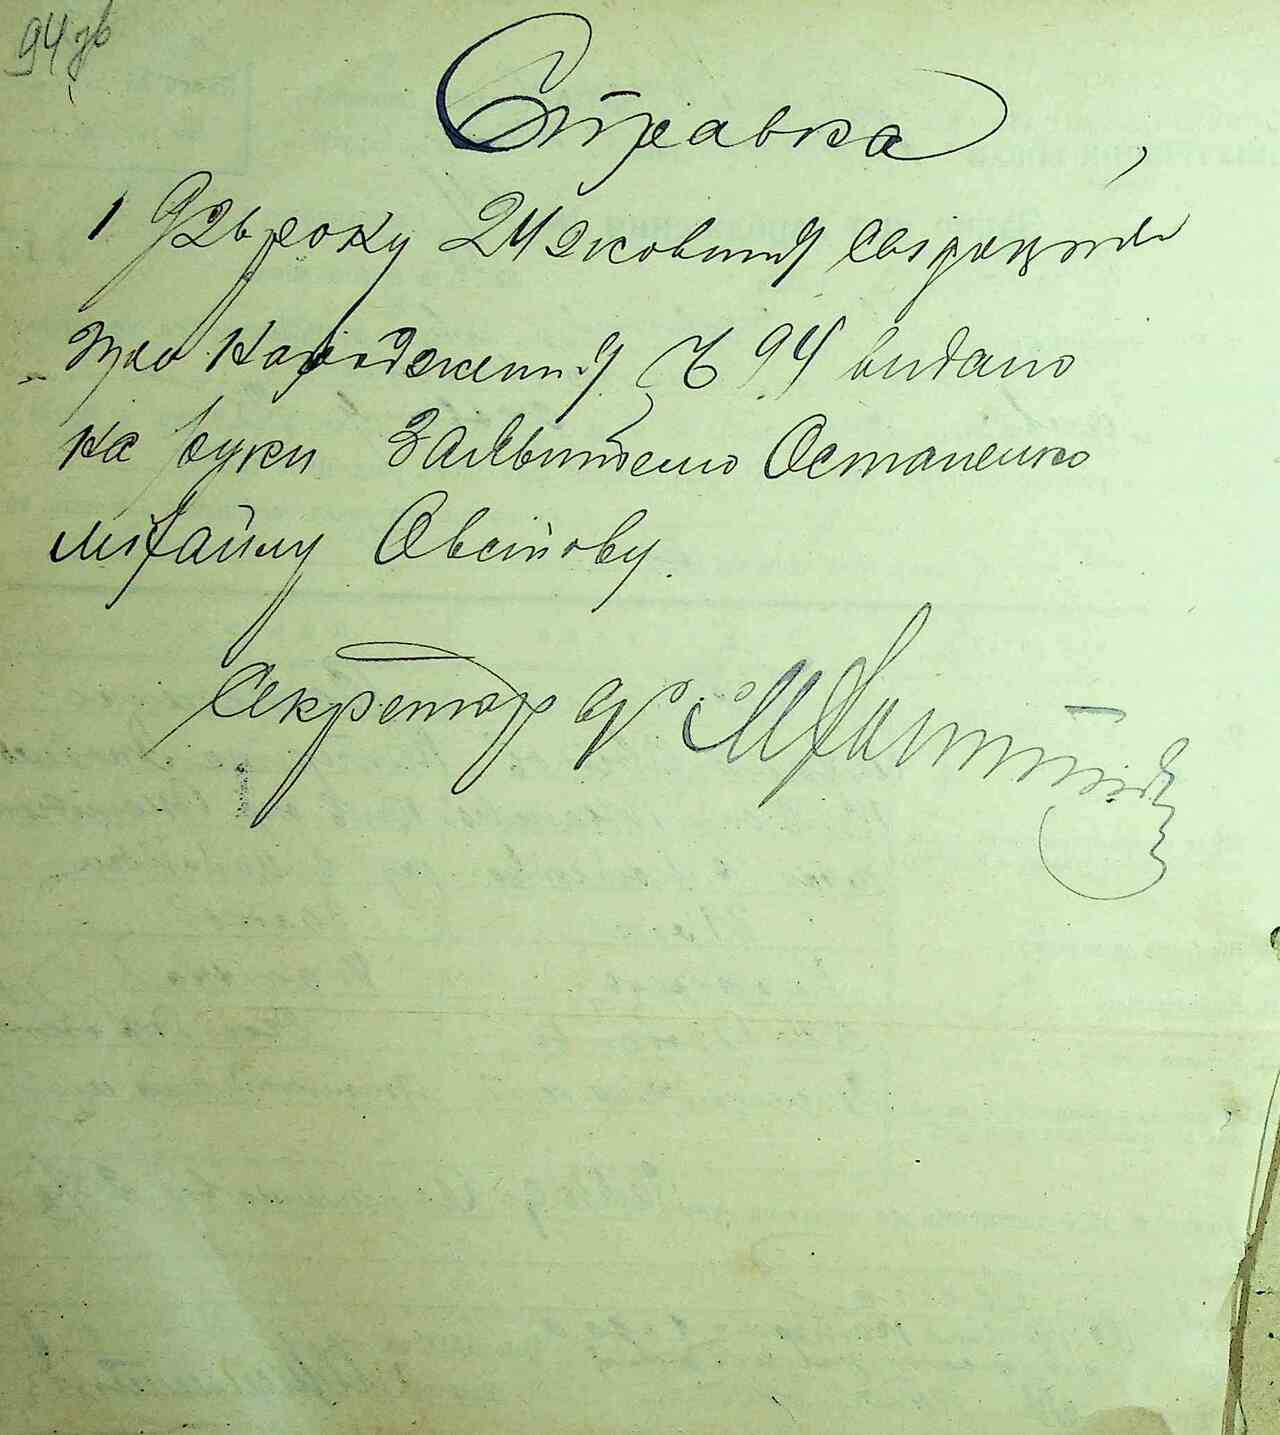 94 зв
Справка
1926 року 24 жовтня свідоцтво
про народження Ч 94 видано
на руки заявителю Остапенко
міхайлу Овсійову.
Секретар